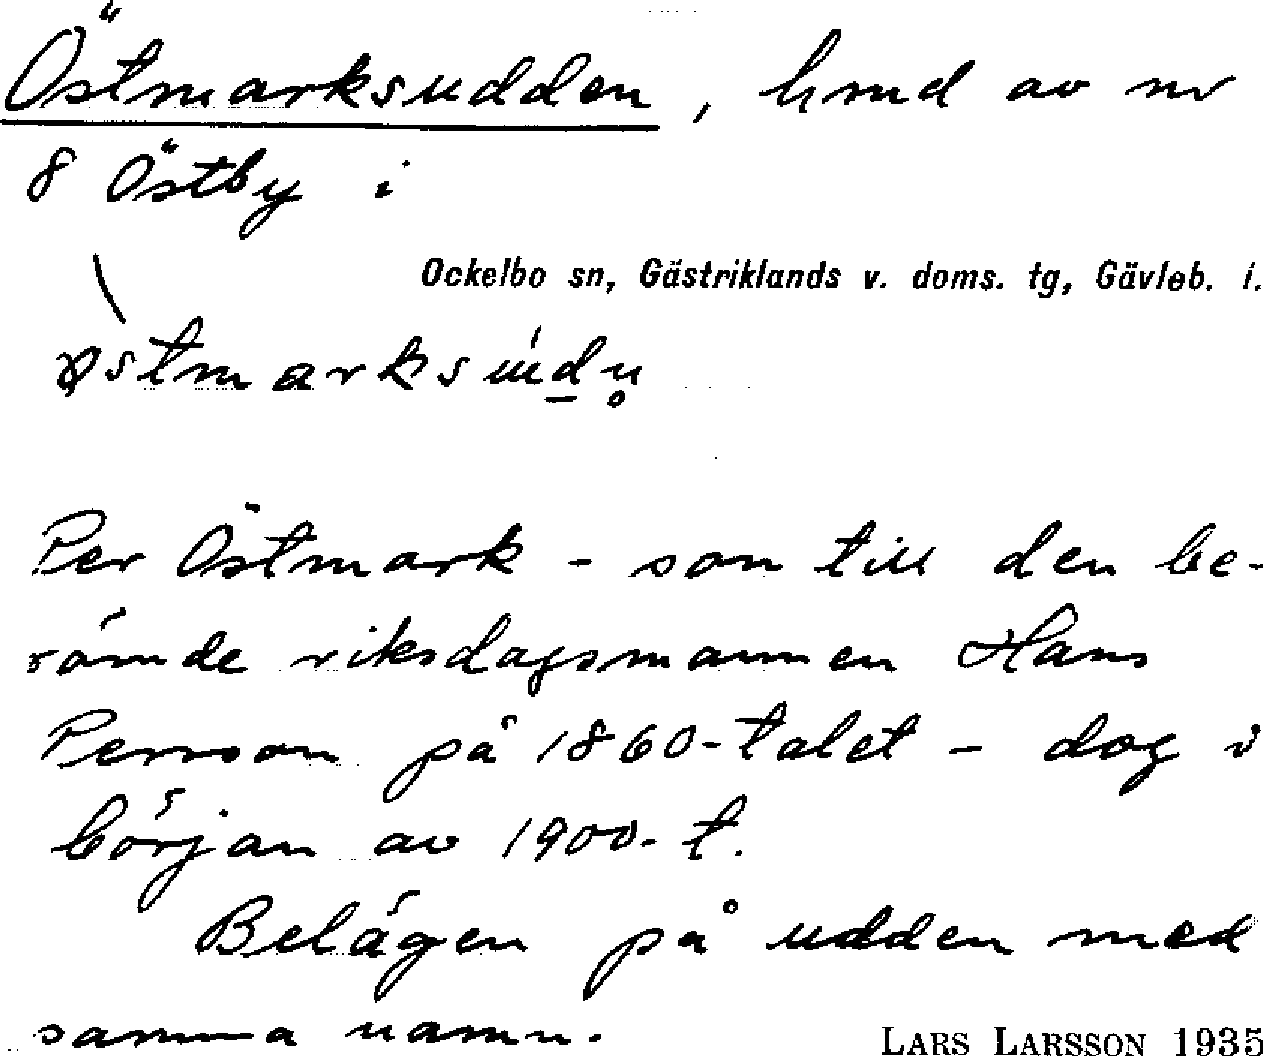 Östmarksudden, hmd av nr
8 Östby i
Ockelbo sn, Gästriklands v. doms. tg, Gävleb. l.
Per Östmark - son till den be-
römde riksdagsmannen Hans
Person på 1860-talet - dog i
början av 1900-t.
Belägen på udden med
samma namn.
LARS LARSSON 1935